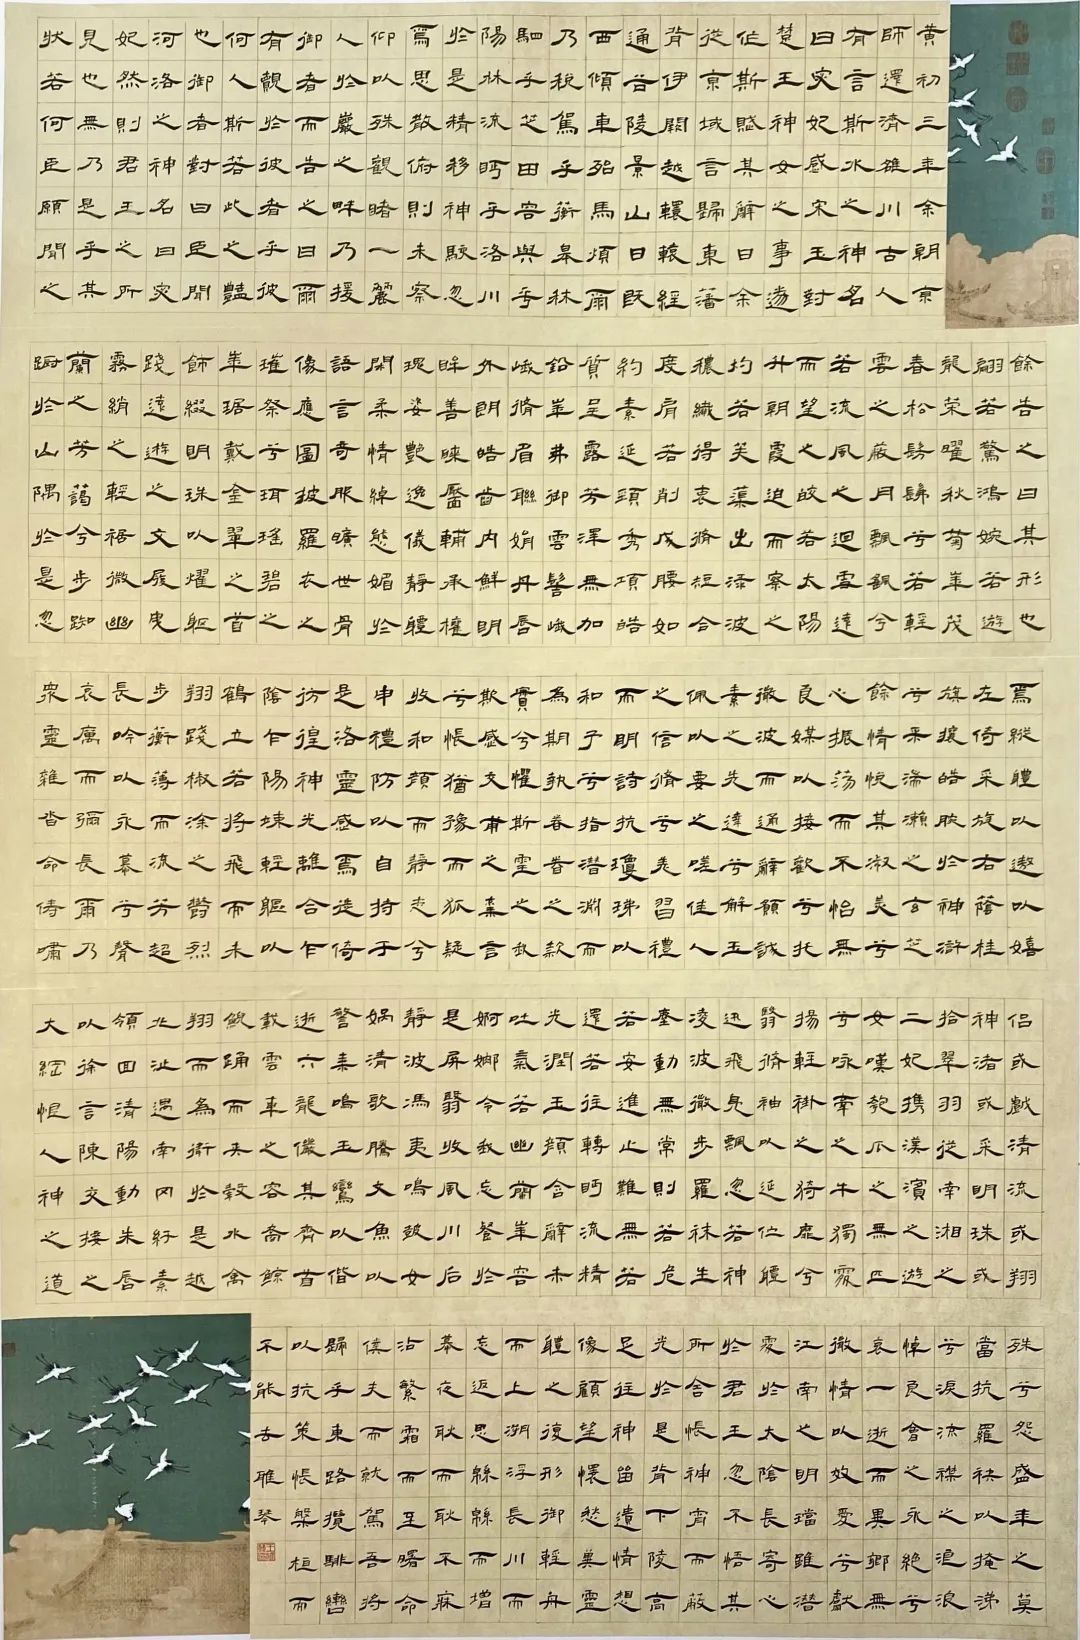 黄初三年余朝京
師還濟雒川古人
有言斯水之神名
曰宓妃感宋玉對
楚王神女之事遂
作斯賦其辭曰余
從京域言歸東藩
背伊闕越轘轅經
通谷陵景山日既
西傾車殆馬煩爾
乃税駕乎蘅皋秣
駟乎芝田容與乎
陽林流眄乎洛川
於是精移神駭忽
焉思散俯則未察
仰以殊觀睹一麗
人於巖之畔乃援
御者而告之曰爾
有覿於彼者乎彼
何人斯若此之豔
也御者對曰臣聞
河洛之神名曰宓
妃然則君王之所
見也無乃是乎其
狀若何臣願聞之
餘告之曰其形也
翩若驚鴻婉若遊
龍榮曜秋菊華茂
春松髣髴兮若輕
雲之蔽月飄飖兮
若流風之迴雪遠
而望之皎若太陽
升朝霞迫而察之
灼若芙蕖出渌波
穠纖得衷脩短合
度肩若削成腰如
約素延頸秀項皓
質呈露芳澤無加
鉛華弗御雲髻峨
峨脩眉聯娟丹唇
外朗皓齒内鮮明
眸善睞靨輔承權
瑰姿艷逸儀靜體
閑柔情綽態媚於
語言奇服曠世骨
像應圖披羅衣之
璀粲兮珥瑤碧之
華琚戴金翠之首
飾綴明珠以耀軀
踐遠遊之文履曳
霧綃之輕裾微幽
蘭之芳藹兮步踟
躕於山隅於是忽
焉縱體以遨以嬉
左倚采旄右蔭桂
旗攘皓腕於神滸
兮采湍瀨之玄芝
餘情悅其淑美兮
心振蕩而不怡無
良媒以接歡兮托
微波而通辭願誠
素之先達兮解玉
佩以要之嗟佳人
之信脩兮羌習禮
而明詩抗瓊珶以
和予兮指潛淵而
為期執眷眷之款
實兮懼斯靈之我
欺感交甫之棄言
兮悵猶豫而狐疑
收和顏而靜志兮
申禮防以自持於
是洛靈感焉徙倚
彷徨神光離合乍
陰乍陽竦輕軀以
鶴立若將飛而未
翔踐椒塗之郁烈
步蘅薄而流芳超
長吟以永慕兮聲
哀厲而彌長爾乃
衆靈雜沓命儔嘯
侶或戲清流或翔
神渚或采明珠或
拾翠羽從南湘之
二妃攜漢濱之遊
女嘆匏瓜之無匹
兮詠牽牛之獨處
揚輕袿之猗靡兮
翳脩袖以延佇體
迅飛鳧飄忽若神
凌波微步羅袜生
塵動無常則若危
若安進止難期若
還若往轉眄流精
光潤玉顏含辭未
吐氣若幽蘭華容
婀娜令我忘餐於
是屏翳收風川后
靜波馮夷鳴鼓女
媧清歌騰文魚以
警乘鳴玉鸞以偕
逝六龍儼其齊首
載雲車之容裔鯨
鯢踴而夾轂水禽
翔而為衛於是越
北沚過南岡紆素
領迴清陽動朱唇
以徐言陳交接之
大綱恨人神之道
殊兮怨盛年之莫
當抗羅袂以掩涕
兮淚流襟之浪浪
悼良會之永絕兮
哀一逝而異鄉無
微情以效愛兮獻
江南之明璫雖潛
處於太陰長寄心
於君王忽不悟其
所舍悵神宵而蔽
光於是背下陵高
足往神留遺情想
像顧望懷愁冀靈
體之復形御輕舟
而上溯浮長川而
忘返思綿綿而增
慕夜耿耿而不寐
沾繁霜而至曙命
僕夫而就駕吾將
歸乎東路攬騑轡
以抗策悵盤桓而
不能去 雅琴